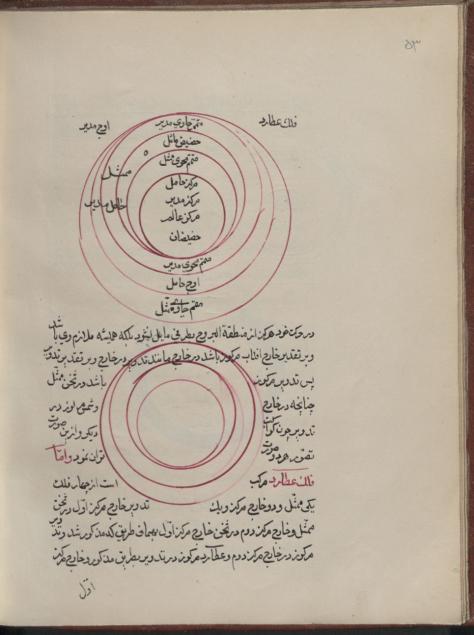 ۵۳
فلک عطارد
اوج مدیر
متمم حاوی مدیر
حضیض مائل
متمم محوی ممثل
ممثل
مرکز حامل
حامل مدیر
مرکز مدیر
مرکز عالم
حضیضان
متمم محوی مدیر
اوج حامل
متمم حاوی ممثل
در حرکت خود هرگز از منطقة البروج بطرفی مایل نشود بلکه همیشه ملازم وی باشد
و بر تقدیر خارج آفتاب مرکوز باشد در خارج مانند تدویر در خارج و بر تقدیر تدویر
پس تدویر مرکوز باشد در ثخن ممثل
چنانچه در خارج و شمس در
تدویر چون کواکب دیگر و ازین صورت
تصور هر دو صورت توان نمود و اما
فلک عطارد مرکب است از چهار فلک
یکی ممثل و دو خارج مرکز و یک تدویر خارج مرکز اول در ثخن
ممثل و خارج مرکز دوم در ثخن خارج مرکز اول بهمان طریق که مذکور شد و تدویر
مرکوز در خارج مرکز دوم و عطارد مرکوز در تدویر بطریق مذکور و خارج مرکز
اول